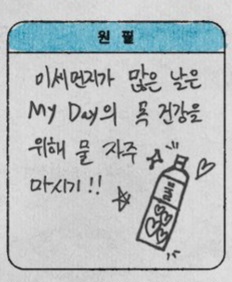 원 필
미세먼지가 많은 날은
My Day의 목 건강을
위해 물 자주
마시기!!